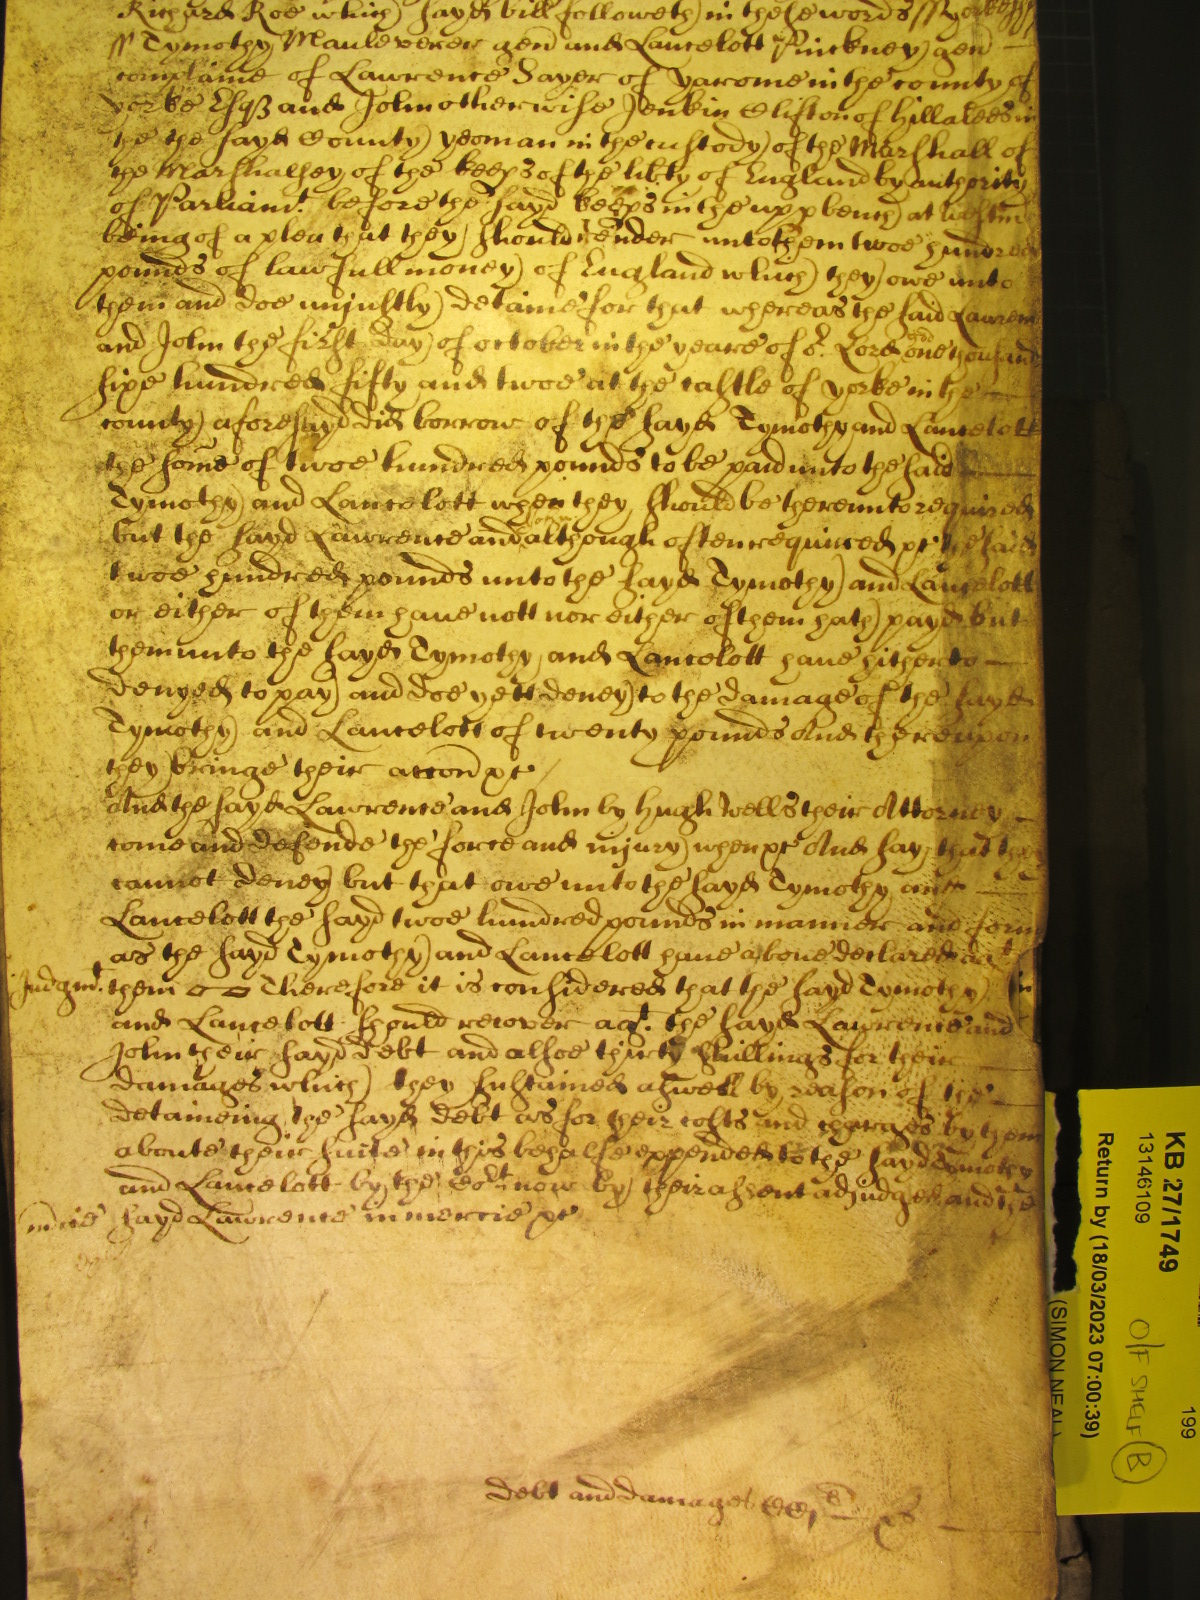 Richard Roe which sayd bill followeth in these words ss yorke ss
ss Tymothy Mauleverer gen and Lancelott Pinckney gen
complaine of Lawrence Sayer of Yarome in the county of
yorke Esqr and John otherwise Jenkin Clifton of Hillalees in
the the sayd County yeoman in the custody of the Marshall of
the Marshalsey of the keeps of the libty of England by authority
of Parliamt. before the sayd keeps in the upp bench at
being of a plea that they should render unto them twoe hundred
pounds of lawfull money of England which they owe unto
them and doe unjustly detaine for that whereas the said Lawrence
and John the first day of october in the yeare of or. Lord god one thousand
sixe hundred fifty and twoe at the castle of yorke in the
county aforesayd did borrow of the sayd Tymothy and Lancelott
the some of twoe hundred pounds to be paid unto the said
Tymothy and Lancelott when they should be thereunto required
but the sayd Lawrence and John although often required &c the said
twoe hundred pounds unto the sayd Tymothy and Lancelott
or either of them have nott nor either of them hath payd but
them unto the sayd Tymothy and Lancelott have hitherto
denyed to pay and doe yett deney to the damage of the sayd
Tymothy and Lancelott of twenty pounds And thereupon
they bringe their accon &c
And the sayd Lawrence and John by Hugh Wells their Attorney
come and defende the force and injury when &c And say that they
cannot deney but that owe unto the sayd Tymothy and
Lancelott the sayd twoe hundred pounds in manner and form
as the sayd Tymothy and Lancelott have above declared agt
Judgmt. them Therefore it is considered that the sayd Tymothy
and Lancelott should recover agt. the sayd Lawrence and
John their sayd debt and alsoe thirty shillings for their
damages which they sustained aswell by reason of the
detaineing the sayd debt as for their costs and charges by them
aboute their suite in this behalfe expended to the sayd Tymothy
and Lancelott by the Cort now by their assent adjudged and the
mcie sayd Lawrence in mercie &c
debt and damages CCi li xs
KB 27/1749
13146109
Return by (18/03/2023 07:00:39)
(SIMON NEAL)
O/F SHELF B
199